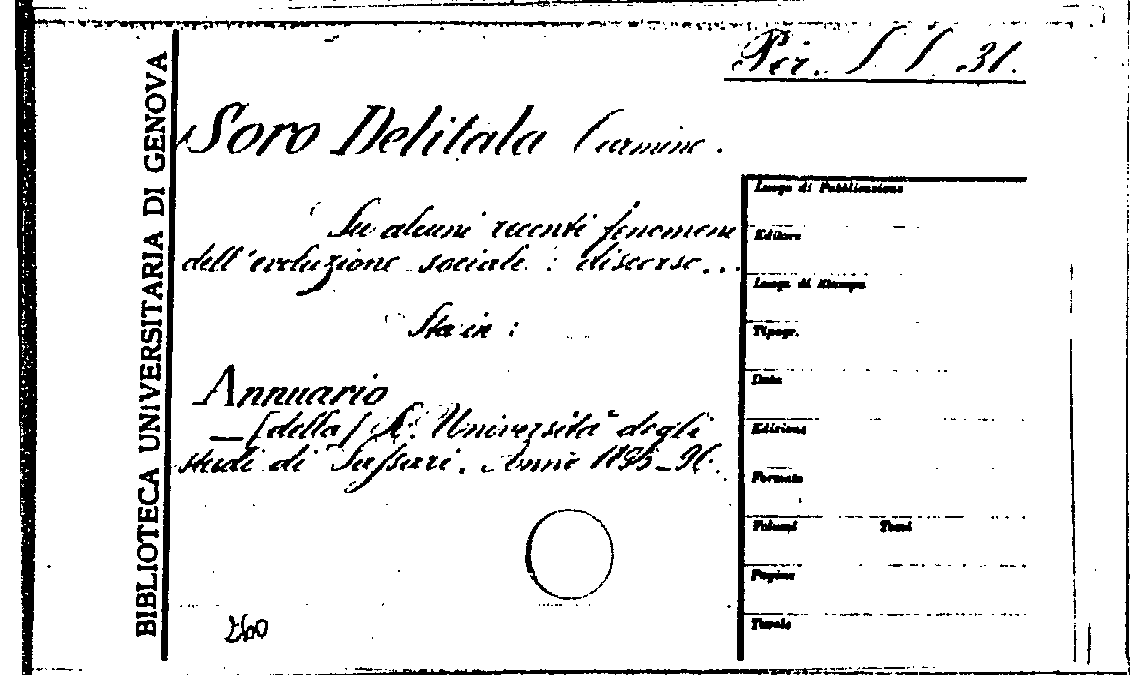 BIBLIOTECA UNIVERSITARIA DI GENOVA
Per. S. S. 31.
Soro Delitala Carmine.
Su alcuni recenti fenomeni
dell'evoluzione sociale: discorso...
Sta in:
Annuario
— [della] R. Università degli
studi di Sassari. Anno 1895-96.
260
Luogo di Pubblicazione
Editore
Luogo di Stampa
Tipogr.
Data
Edizione
Formato
Volumi Tomi
Pagine
Tavole